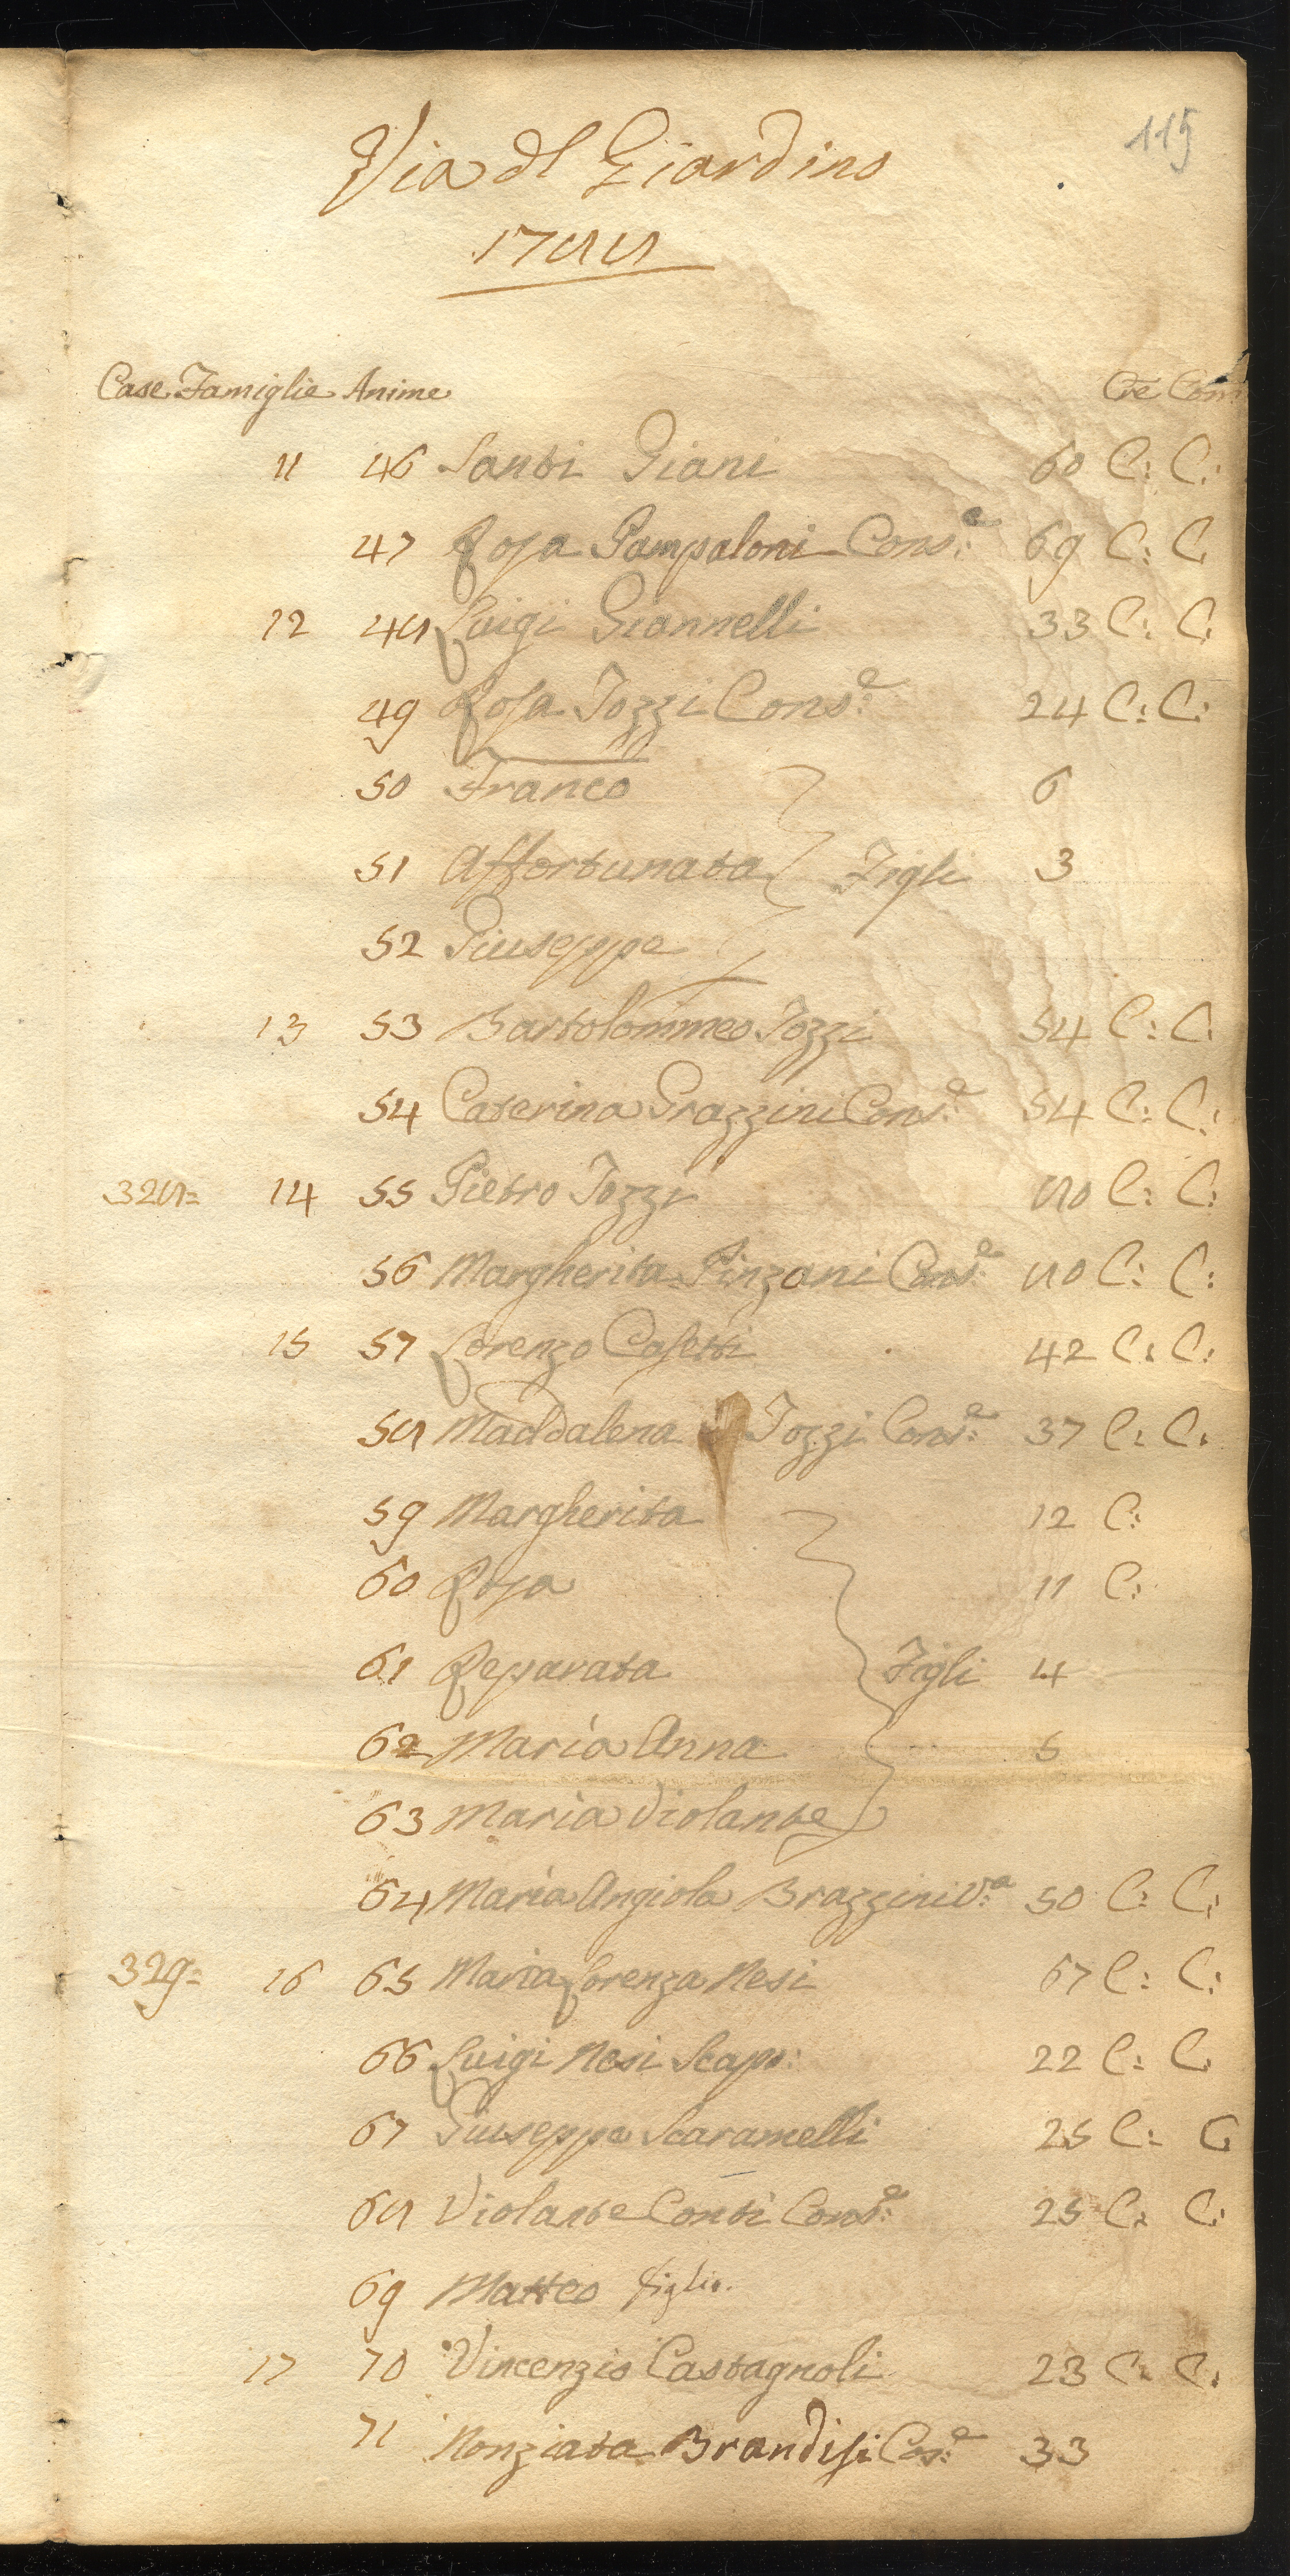 115
Via del Giardino
1788
Case Famiglie Anime Cre Com
11 46 Santi Giani 60 C: C:
47 Rosa Pampaloni Cons.e 69 C: C
12 48 Luigi Giannelli 33 C: C:
49 Rosa Tozzi Cons.e 24 C: C:
50 Franco 6
51 Affortunata Figli 3
52 Giuseppe
13 53 Bartolommeo Tozzi 54 C: C:
54 Caterina Grazzini Cons.e 54 C: C:
328= 14 55 Pietro Tozzi 80 C: C:
56 Margherita Pinzani Cons.e 80 C: C:
15 57 Lorenzo Casetti 42 C: C:
58 Maddalena Tozzi Cons.e 37 C: C:
59 Margherita 12 C:
60 Rosa 11 C:
61 Reparata Figli 4
62 Maria Anna 6
63 Maria Violante
64 Maria Angiola Brazzini V.a 50 C: C:
329= 16 65 Maria Lorenza Nesi 67 C: C:
66 Luigi Nesi Scapo: 22 C: C
67 Giuseppe Scaramelli 25 C: C
68 Violante Conti Cons.e 25 C: C:
69 Matteo figlio.
17 70 Vincenzio Castagnoli 23 C: C:
71 Nonziata Brandisi Cos.e 33